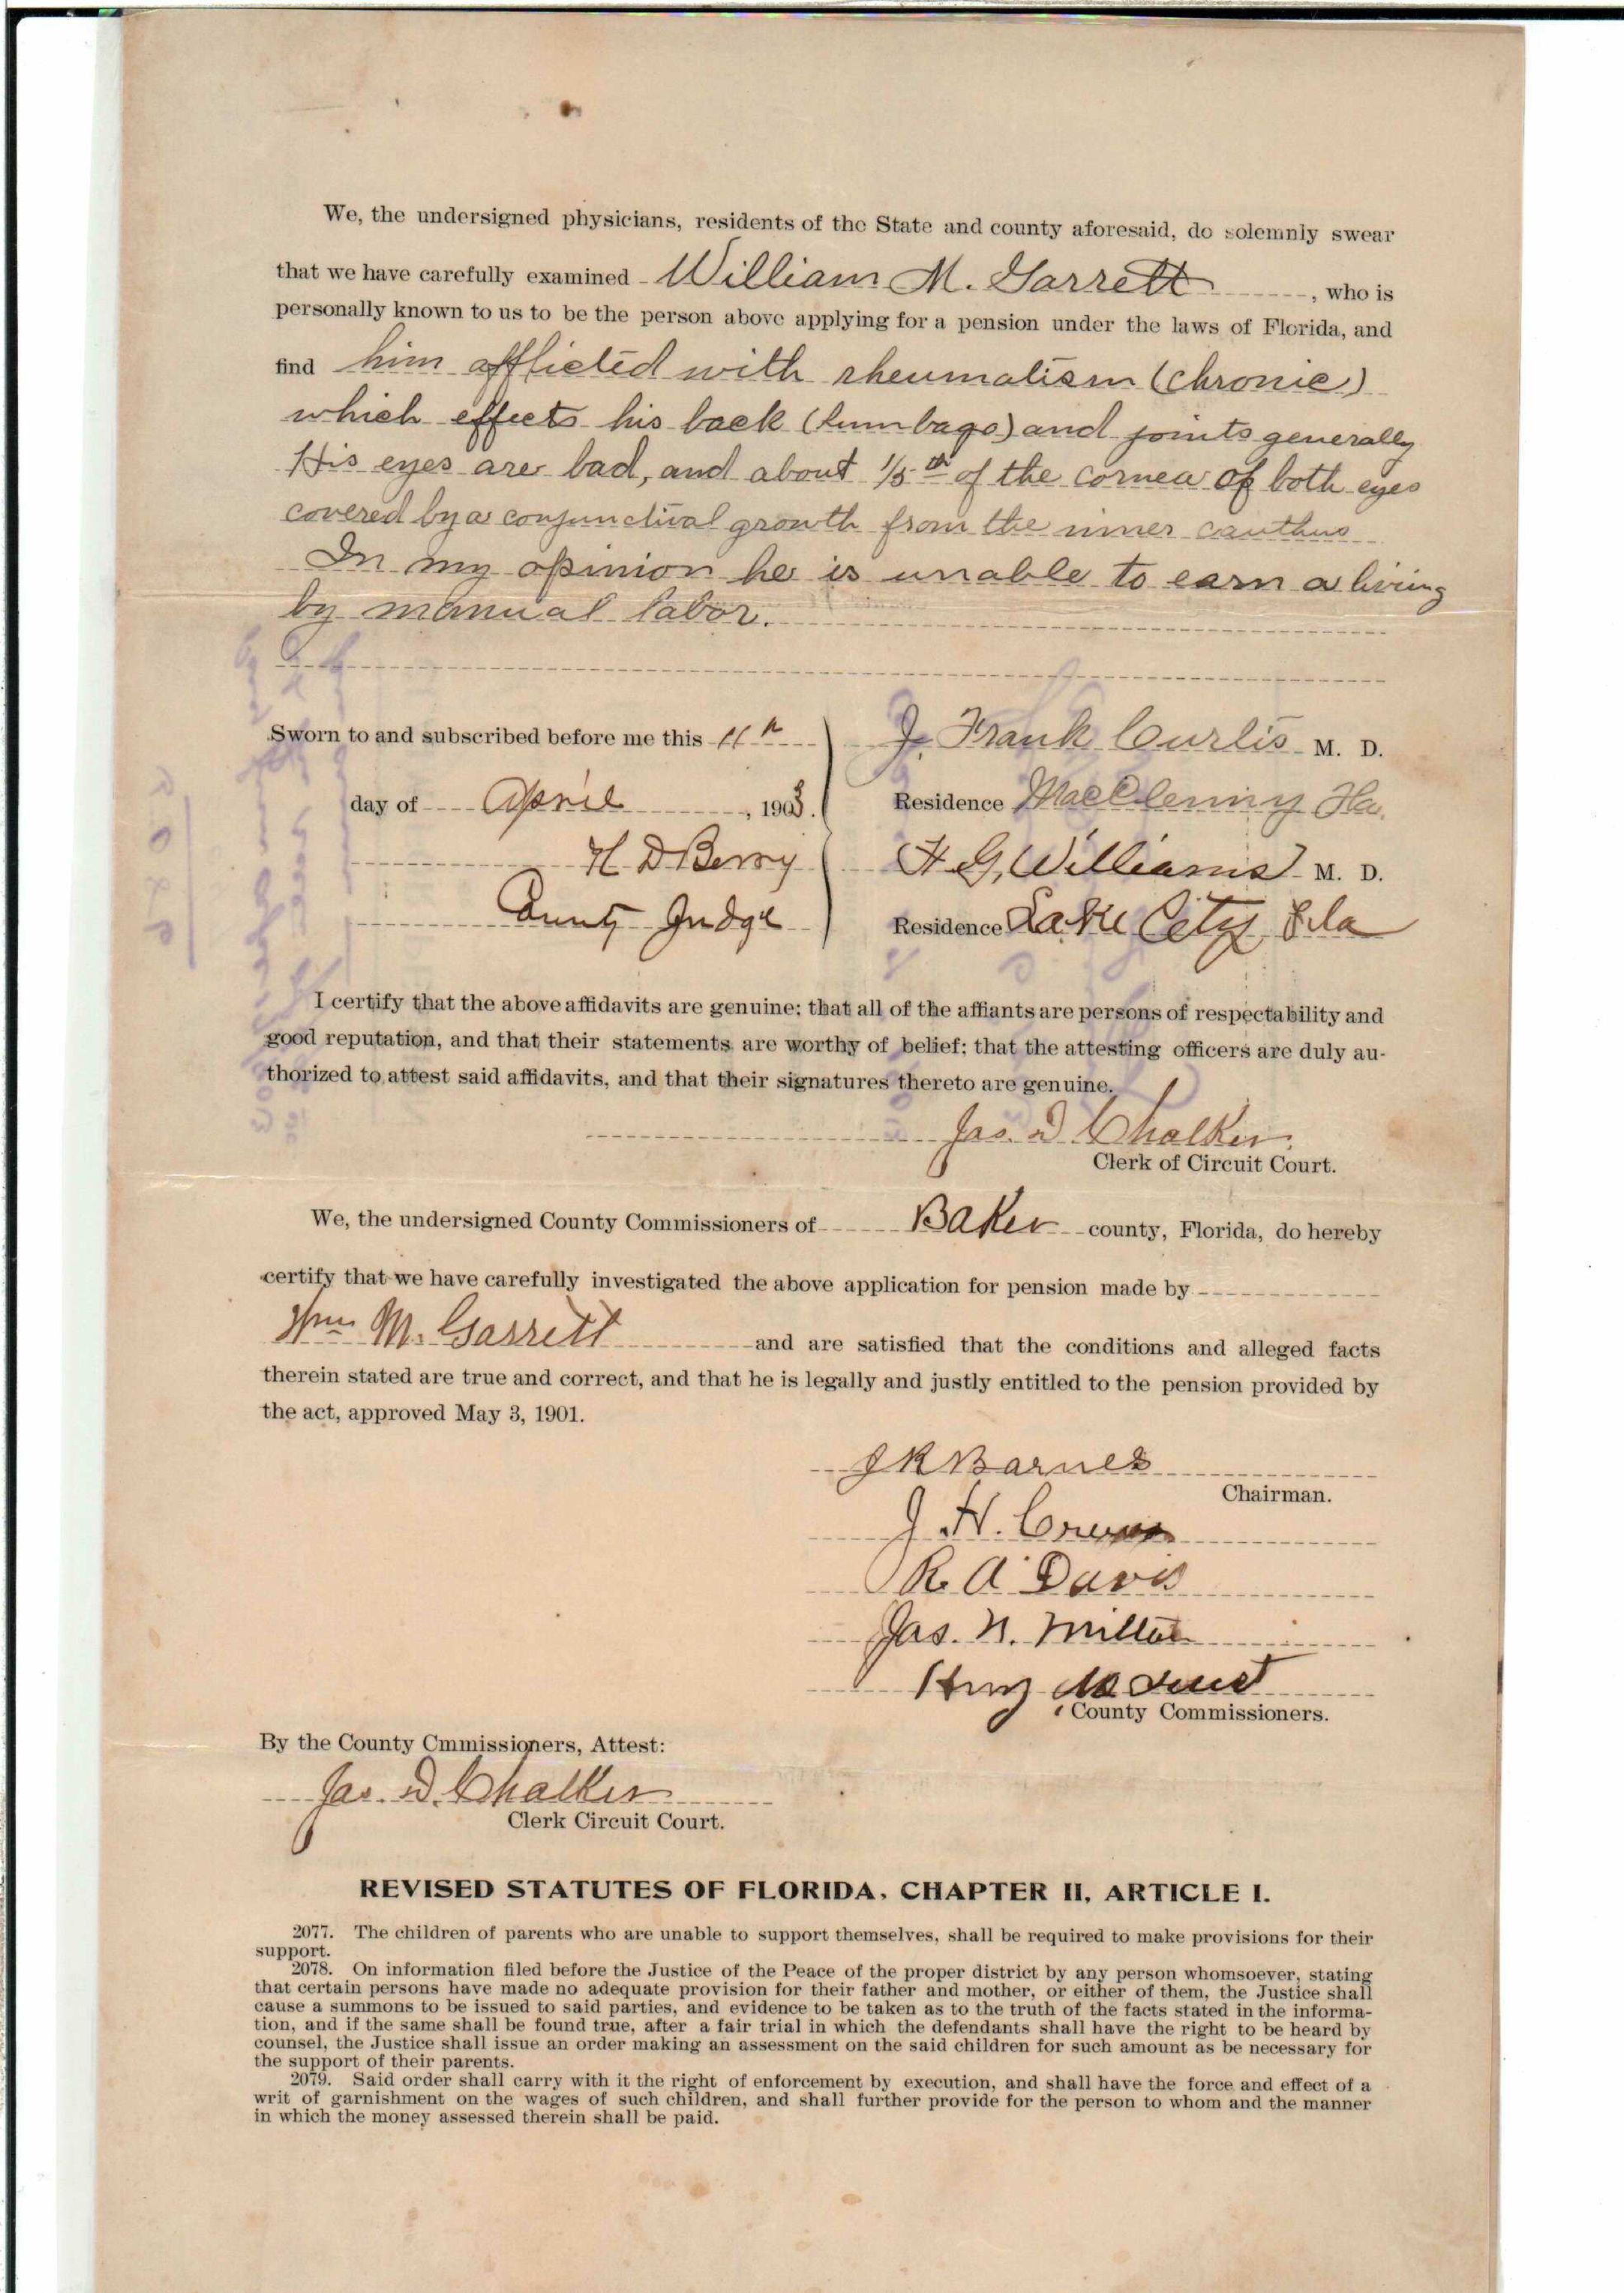 We, the undersigned physicians, residents of the State and county aforesaid, do solemnly swear
that we have carefully examined William M. Garrett, who is
personally known to us to be the person above applying for a pension under the laws of Florida, and
find him afflicted with rheumatism (chronic)
which effects his back (lumbago) and joints generally
His eyes are bad, and about 1/5th of the cornea of both eyes
covered by a conjunctival growth from the inner canthus
In my opinion he is unable to earn a living
by manual labor.
Sworn to and subscribed before me this 11th
J. Frank Curlis M. D.
day of April, 1903.
Residence MacClenny Fla.
H D Berry
F. G. Williams M. D.
County Judge
Residence Lake City Fla
I certify that the above affidavits are genuine; that all of the affiants are persons of respectability and
good reputation, and that their statements are worthy of belief; that the attesting officers are duly au-
thorized to attest said affidavits, and that their signatures thereto are genuine.
Jas. D. Chalker
Clerk of Circuit Court.
We, the undersigned County Commissioners of Baker county, Florida, do hereby
certify that we have carefully investigated the above application for pension made by
Wm M. Garrett and are satisfied that the conditions and alleged facts
therein stated are true and correct, and that he is legally and justly entitled to the pension provided by
the act, approved May 3, 1901.
J R Barnes
Chairman.
J. H. Crews
R. A Davis
Jas. N. Milton
County Commissioners.
By the County Cmmissioners, Attest:
Jas. D. Chalker
Clerk Circuit Court.
REVISED STATUTES OF FLORIDA, CHAPTER II, ARTICLE I.
2077. The children of parents who are unable to support themselves, shall be required to make provisions for their
support.
2078. On information filed before the Justice of the Peace of the proper district by any person whomsoever, stating
that certain persons have made no adequate provision for their father and mother, or either of them, the Justice shall
cause a summons to be issued to said parties, and evidence to be taken as to the truth of the facts stated in the informa-
tion, and if the same shall be found true, after a fair trial in which the defendants shall have the right to be heard by
counsel, the Justice shall issue an order making an assessment on the said children for such amount as be necessary for
the support of their parents.
2079. Said order shall carry with it the right of enforcement by execution, and shall have the force and effect of a
writ of garnishment on the wages of such children, and shall further provide for the person to whom and the manner
in which the money assessed therein shall be paid.